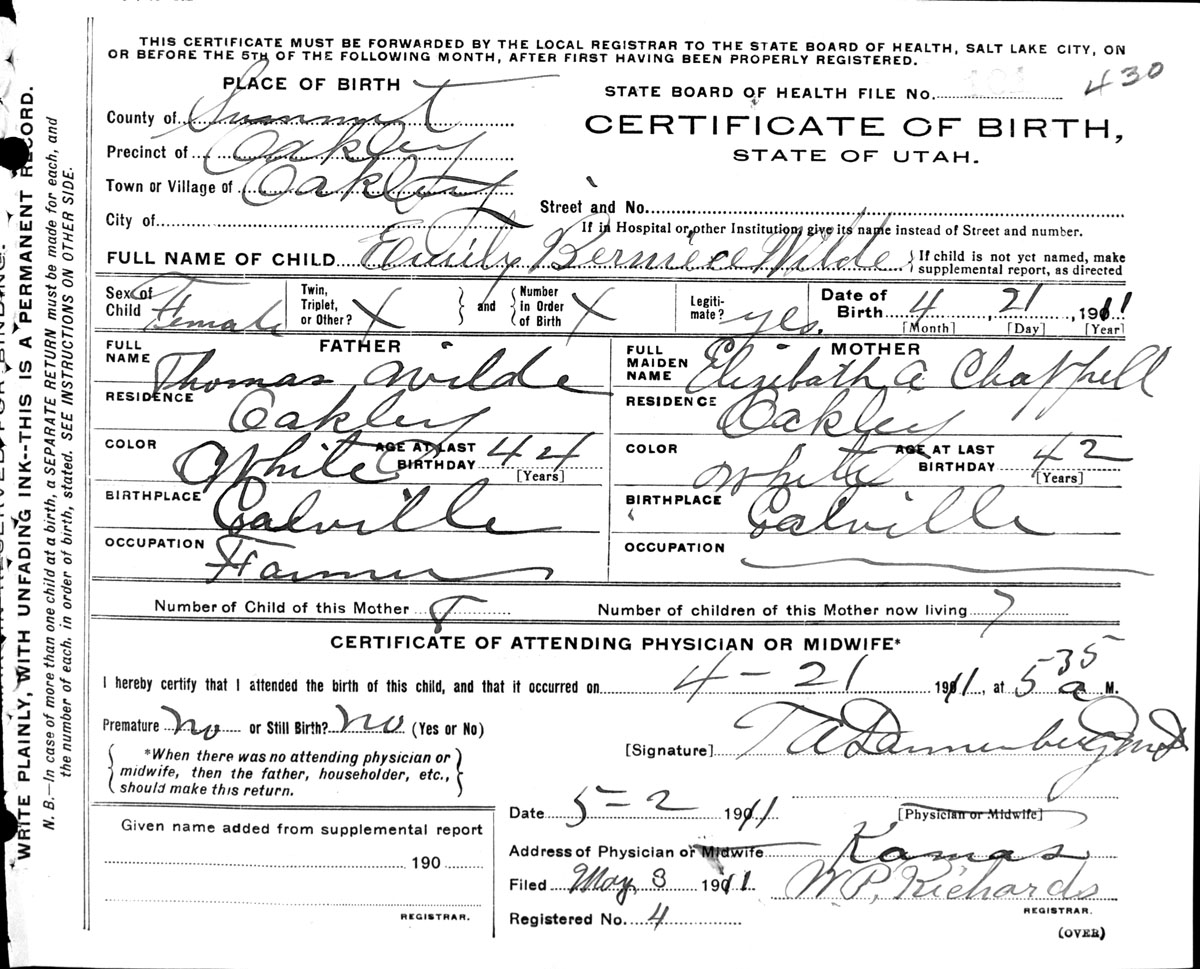 THIS CERTIFICATE MUST BE FORWARDED BY THE LOCAL REGISTRAR TO THE STATE BOARD OF HEALTH, SALT LAKE CITY, ON
OR BEFORE THE 5TH OF THE FOLLOWING MONTH, AFTER FIRST HAVING BEEN PROPERLY REGISTERED.
PLACE OF BIRTH
County of Summit
Precinct of Oakley
Town or Village of Oakley
City of
STATE BOARD OF HEALTH FILE No. 430
CERTIFICATE OF BIRTH,
STATE OF UTAH.
Street and No.
If in Hospital or other Institution, give its name instead of Street and number.
FULL NAME OF CHILD Emily Berniece Wilde { If child is not yet named, make
supplemental report, as directed
Sex of Child Female Twin, Triplet, or Other? X and Number In Order of Birth X Legiti- mate? yes. Date of Birth 4, 21, 1911
[Month] [Day] [Year]
FATHER
FULL NAME Thomas Wilde
RESIDENCE Oakley
COLOR White AGE AT LAST BIRTHDAY 44 [Years]
BIRTHPLACE Coalville
OCCUPATION Farmer
MOTHER
FULL MAIDEN NAME Elizibath A Chappell
RESIDENCE Oakley
COLOR White AGE AT LAST BIRTHDAY 42 [Years]
BIRTHPLACE Coalville
OCCUPATION
Number of Child of this Mother 8 Number of children of this Mother now living 7
CERTIFICATE OF ATTENDING PHYSICIAN OR MIDWIFE*
I hereby certify that I attended the birth of this child, and that it occurred on 4-21 1911, at 5 35 a M.
Premature no or Still Birth? no (Yes or No)
*When there was no attending physician or
midwife, then the father, householder, etc.,
should make this return.
[Signature] T A Dannenberg md
[Physician or Midwife]
Given name added from supplemental report
190
REGISTRAR.
Date 5-2 1911
Address of Physician or Midwife Kamas
Filed May, 3 1911 W.P. Richards
REGISTRAR.
Registered No. 4
(OVER)
WRITE PLAINLY, WITH UNFADING INK--THIS IS A PERMANENT RECORD.
N. B.—In case of more than one child at a birth, a SEPARATE RETURN must be made for each, and
the number of each, in order of birth, stated. SEE INSTRUCTIONS ON OTHER SIDE.